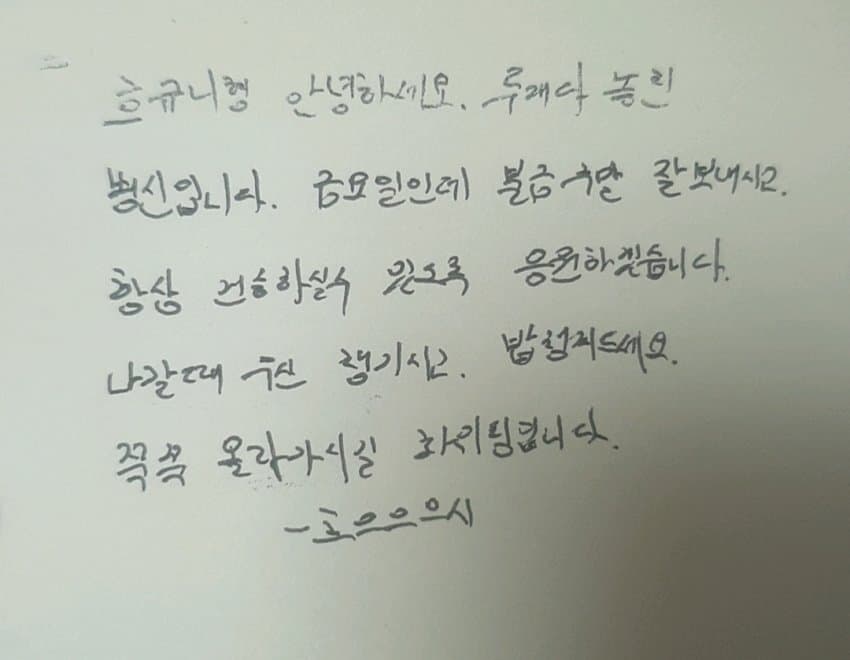 흐규니형 안녕하세요. 루재다 놓린
병신입니다. 금요일인데 불금 주말 잘보내시고.
항상 건승하실수 있도록 응원하겠습니다.
나갈때 우산 챙기시고. 밥 챙겨드세요.
쭉쭉 올라가시길 화이팅입니다.
-흐으으으시